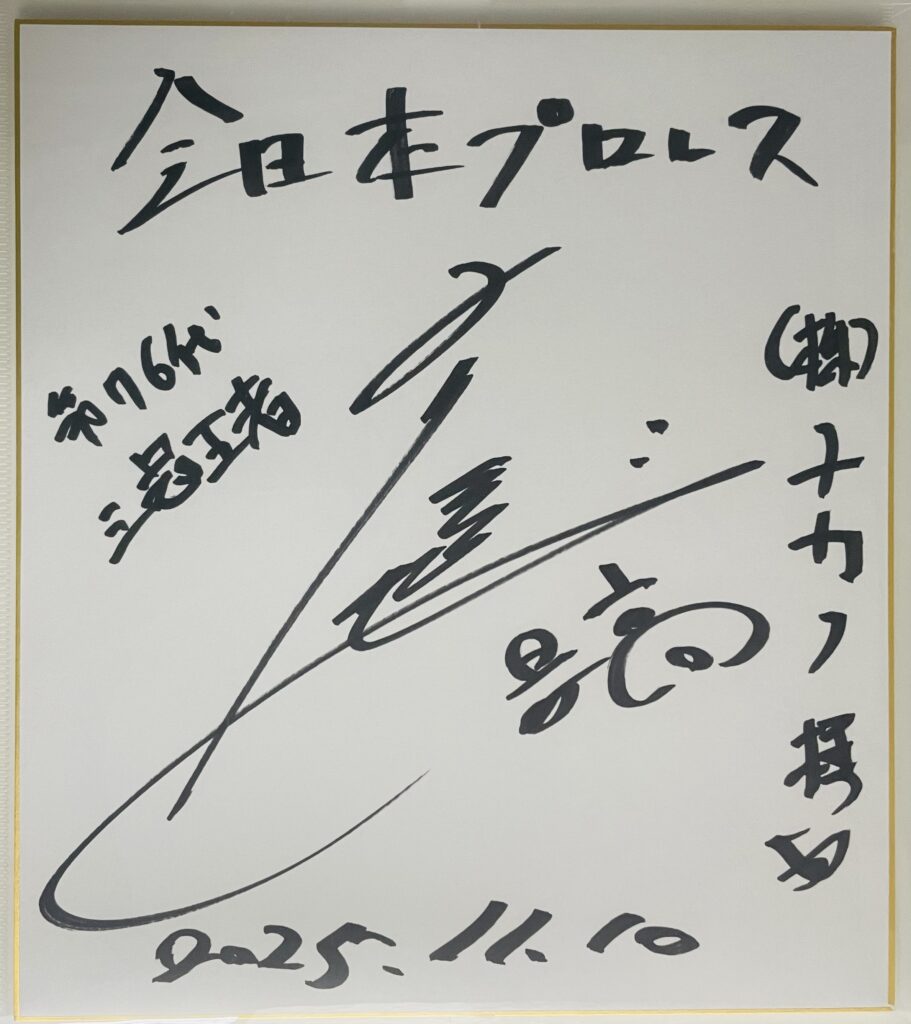 全日本プロレス
第76代
三冠王者
(株)ナカノ 様
最高
2025.11.10